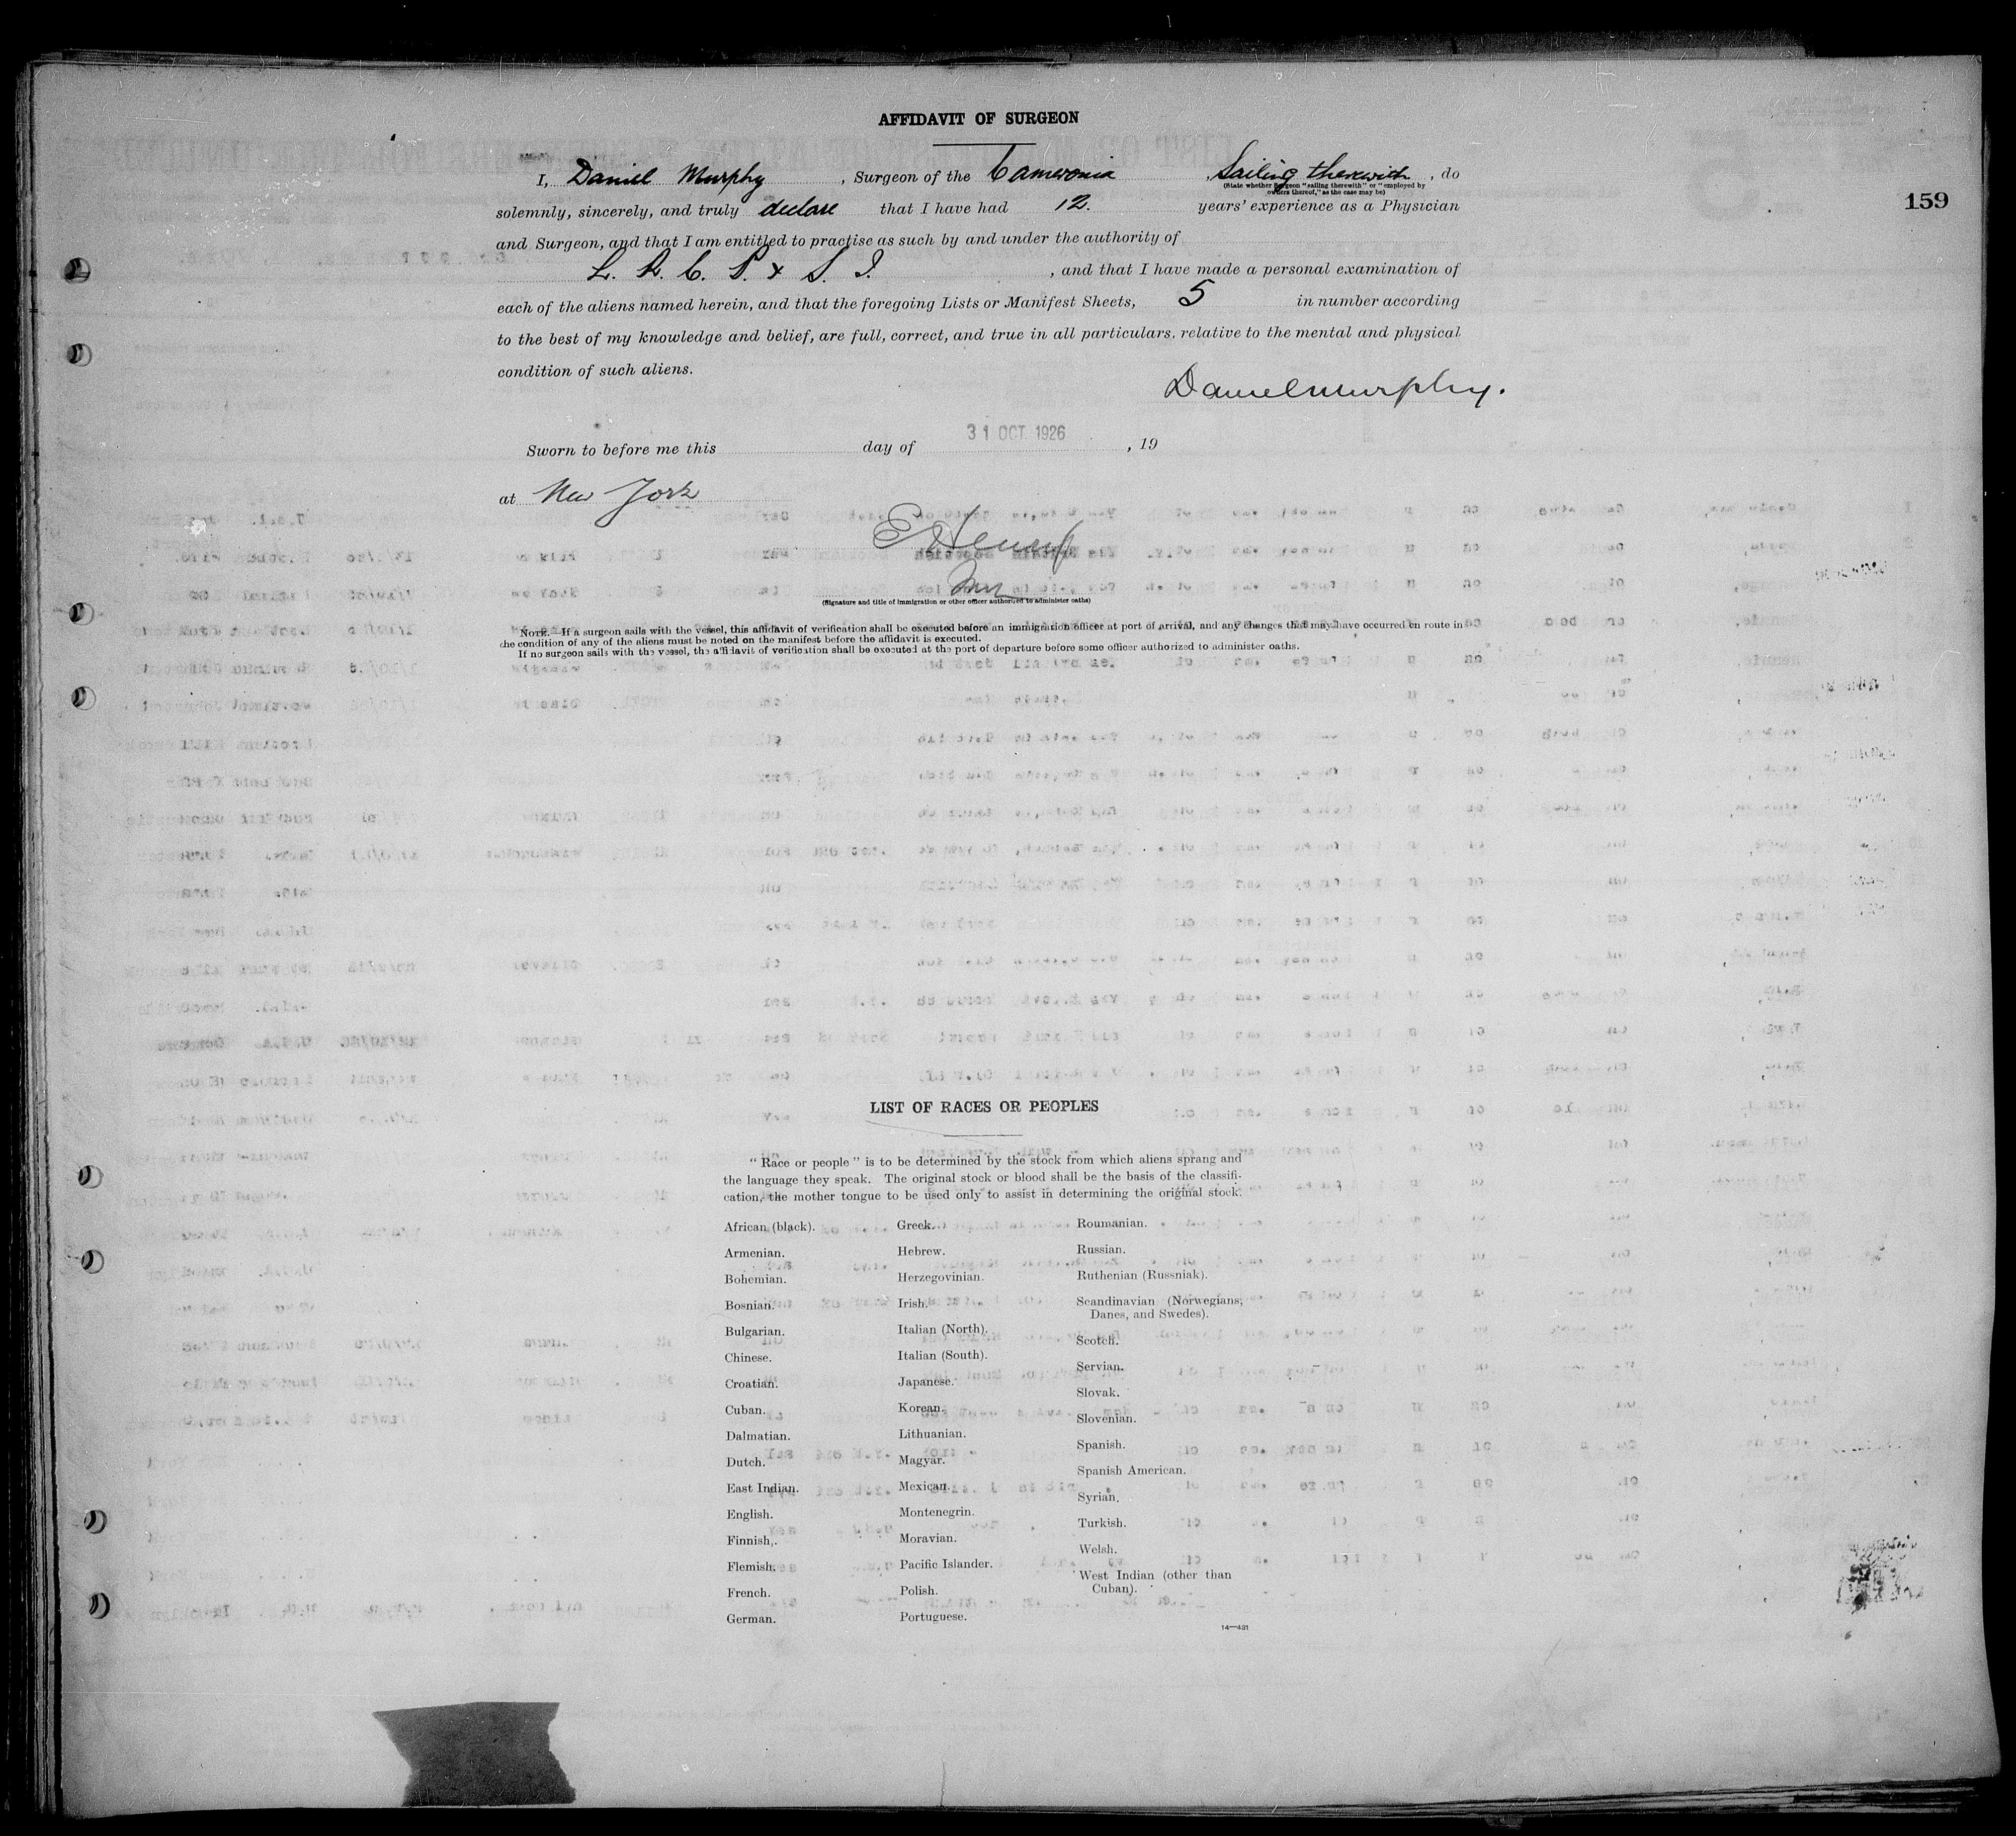 AFFIDAVIT OF SURGEON
I, Daniel Murphy, Surgeon of the Cameronia, Sailing therewith, do
(State whether Surgeon "sailing therewith" or "employed by
owners thereof," as the case may be)
159
solemnly, sincerely, and truly declare that I have had 12. years' experience as a Physician
and Surgeon, and that I am entitled to practise as such by and under the authority of
L. R. C. P. & S. I., and that I have made a personal examination of
each of the aliens named herein, and that the foregoing Lists or Manifest Sheets, 5 in number according
to the best of my knowledge and belief, are full, correct, and true in all particulars. relative to the mental and physical
condition of such aliens.
Daniel Murphy.
Sworn to before me this day of 31 OCT. 1926, 19
at New York
(Signature and title of immigration or other officer authorized to administer oaths)
NOTE.—If a surgeon sails with the vessel, this affidavit of verification shall be executed before an immigration officer at port of arrival, and any changes that may have occurred en route in
the condition of any of the aliens must be noted on the manifest before the affidavit is executed.
If no surgeon sails with the vessel, the affidavit of verification shall be executed at the port of departure before some officer authorized to administer oaths.
LIST OF RACES OR PEOPLES
"Race or people" is to be determined by the stock from which aliens sprang and
the language they speak. The original stock or blood shall be the basis of the classifi-
cation, the mother tongue to be used only to assist in determining the original stock.
African (black).
Armenian.
Bohemian.
Bosnian.
Bulgarian.
Chinese.
Croatian.
Cuban.
Dalmatian.
Dutch.
East Indian.
English.
Finnish.
Flemish.
French.
German.
Greek.
Hebrew.
Herzegovinian.
Irish.
Italian (North).
Italian (South).
Japanese.
Korean.
Lithuanian.
Magyar.
Mexican.
Montenegrin.
Moravian.
Pacific Islander.
Polish.
Portuguese.
Roumanian.
Russian.
Ruthenian (Russniak).
Scandinavian (Norwegians,
Danes, and Swedes).
Scotch.
Servian.
Slovak.
Slovenian.
Spanish.
Spanish American.
Syrian.
Turkish.
Welsh.
West Indian (other than
Cuban).
14—431